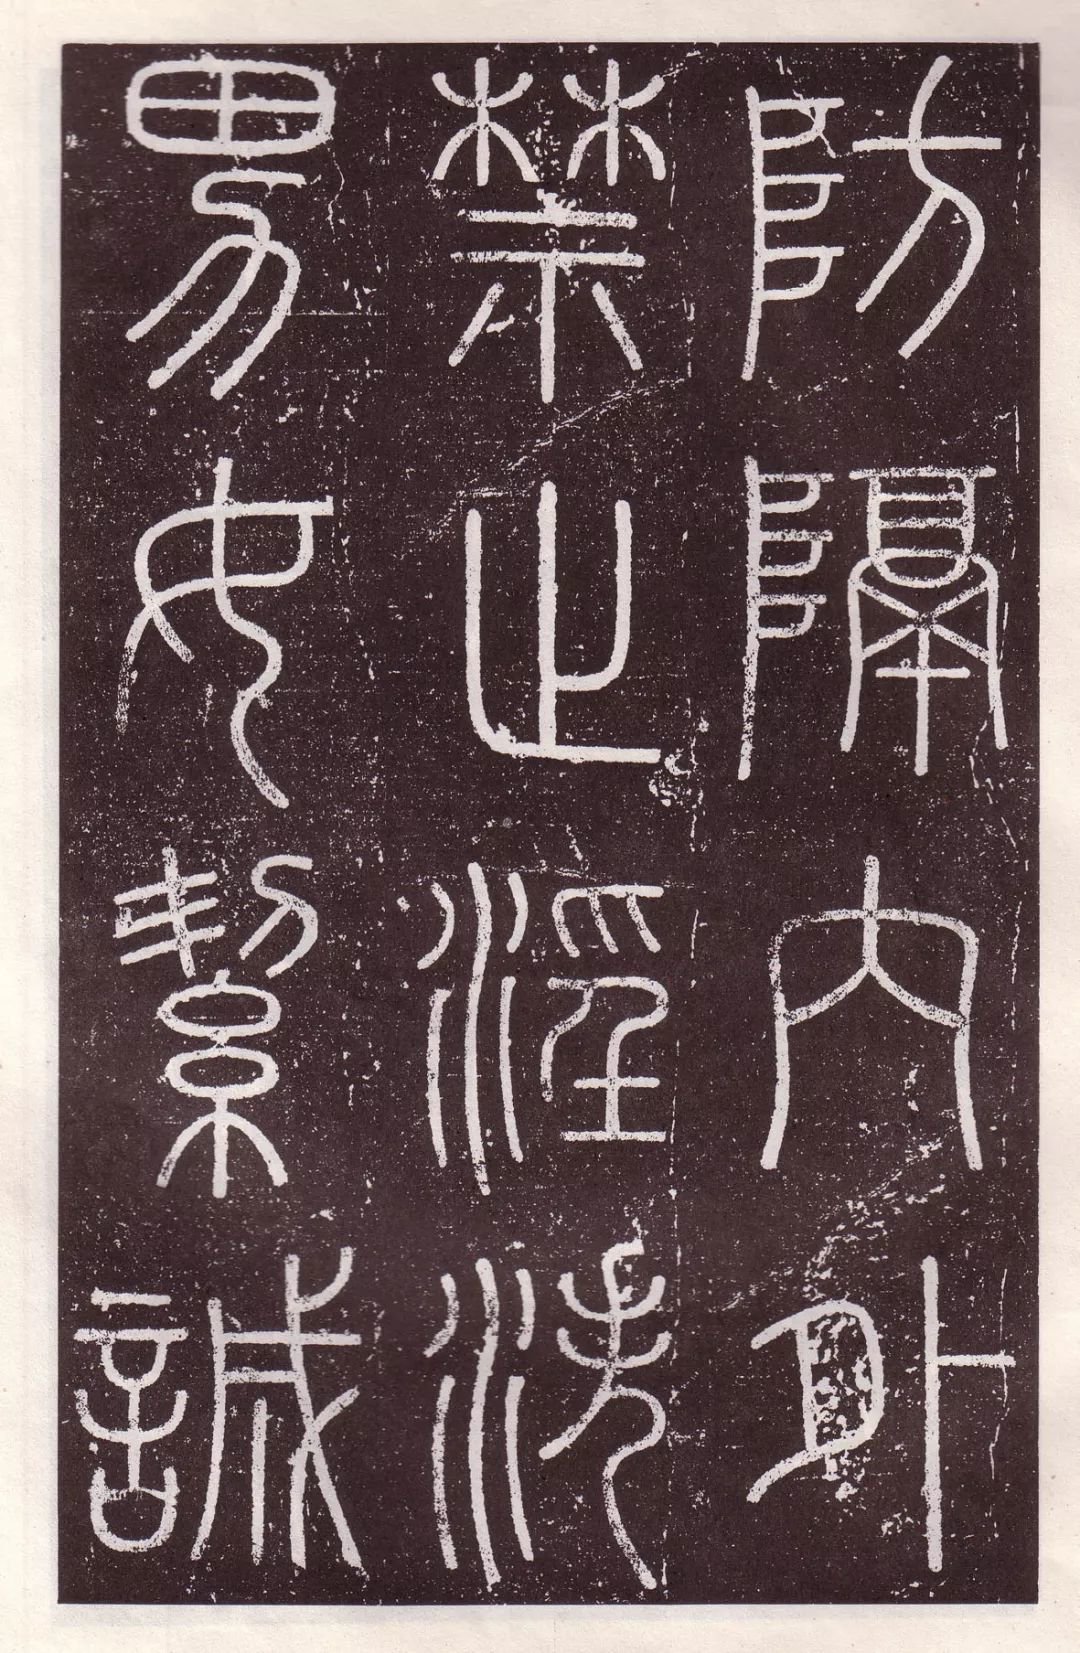 防隔內外
禁止淫泆
男女絜誠